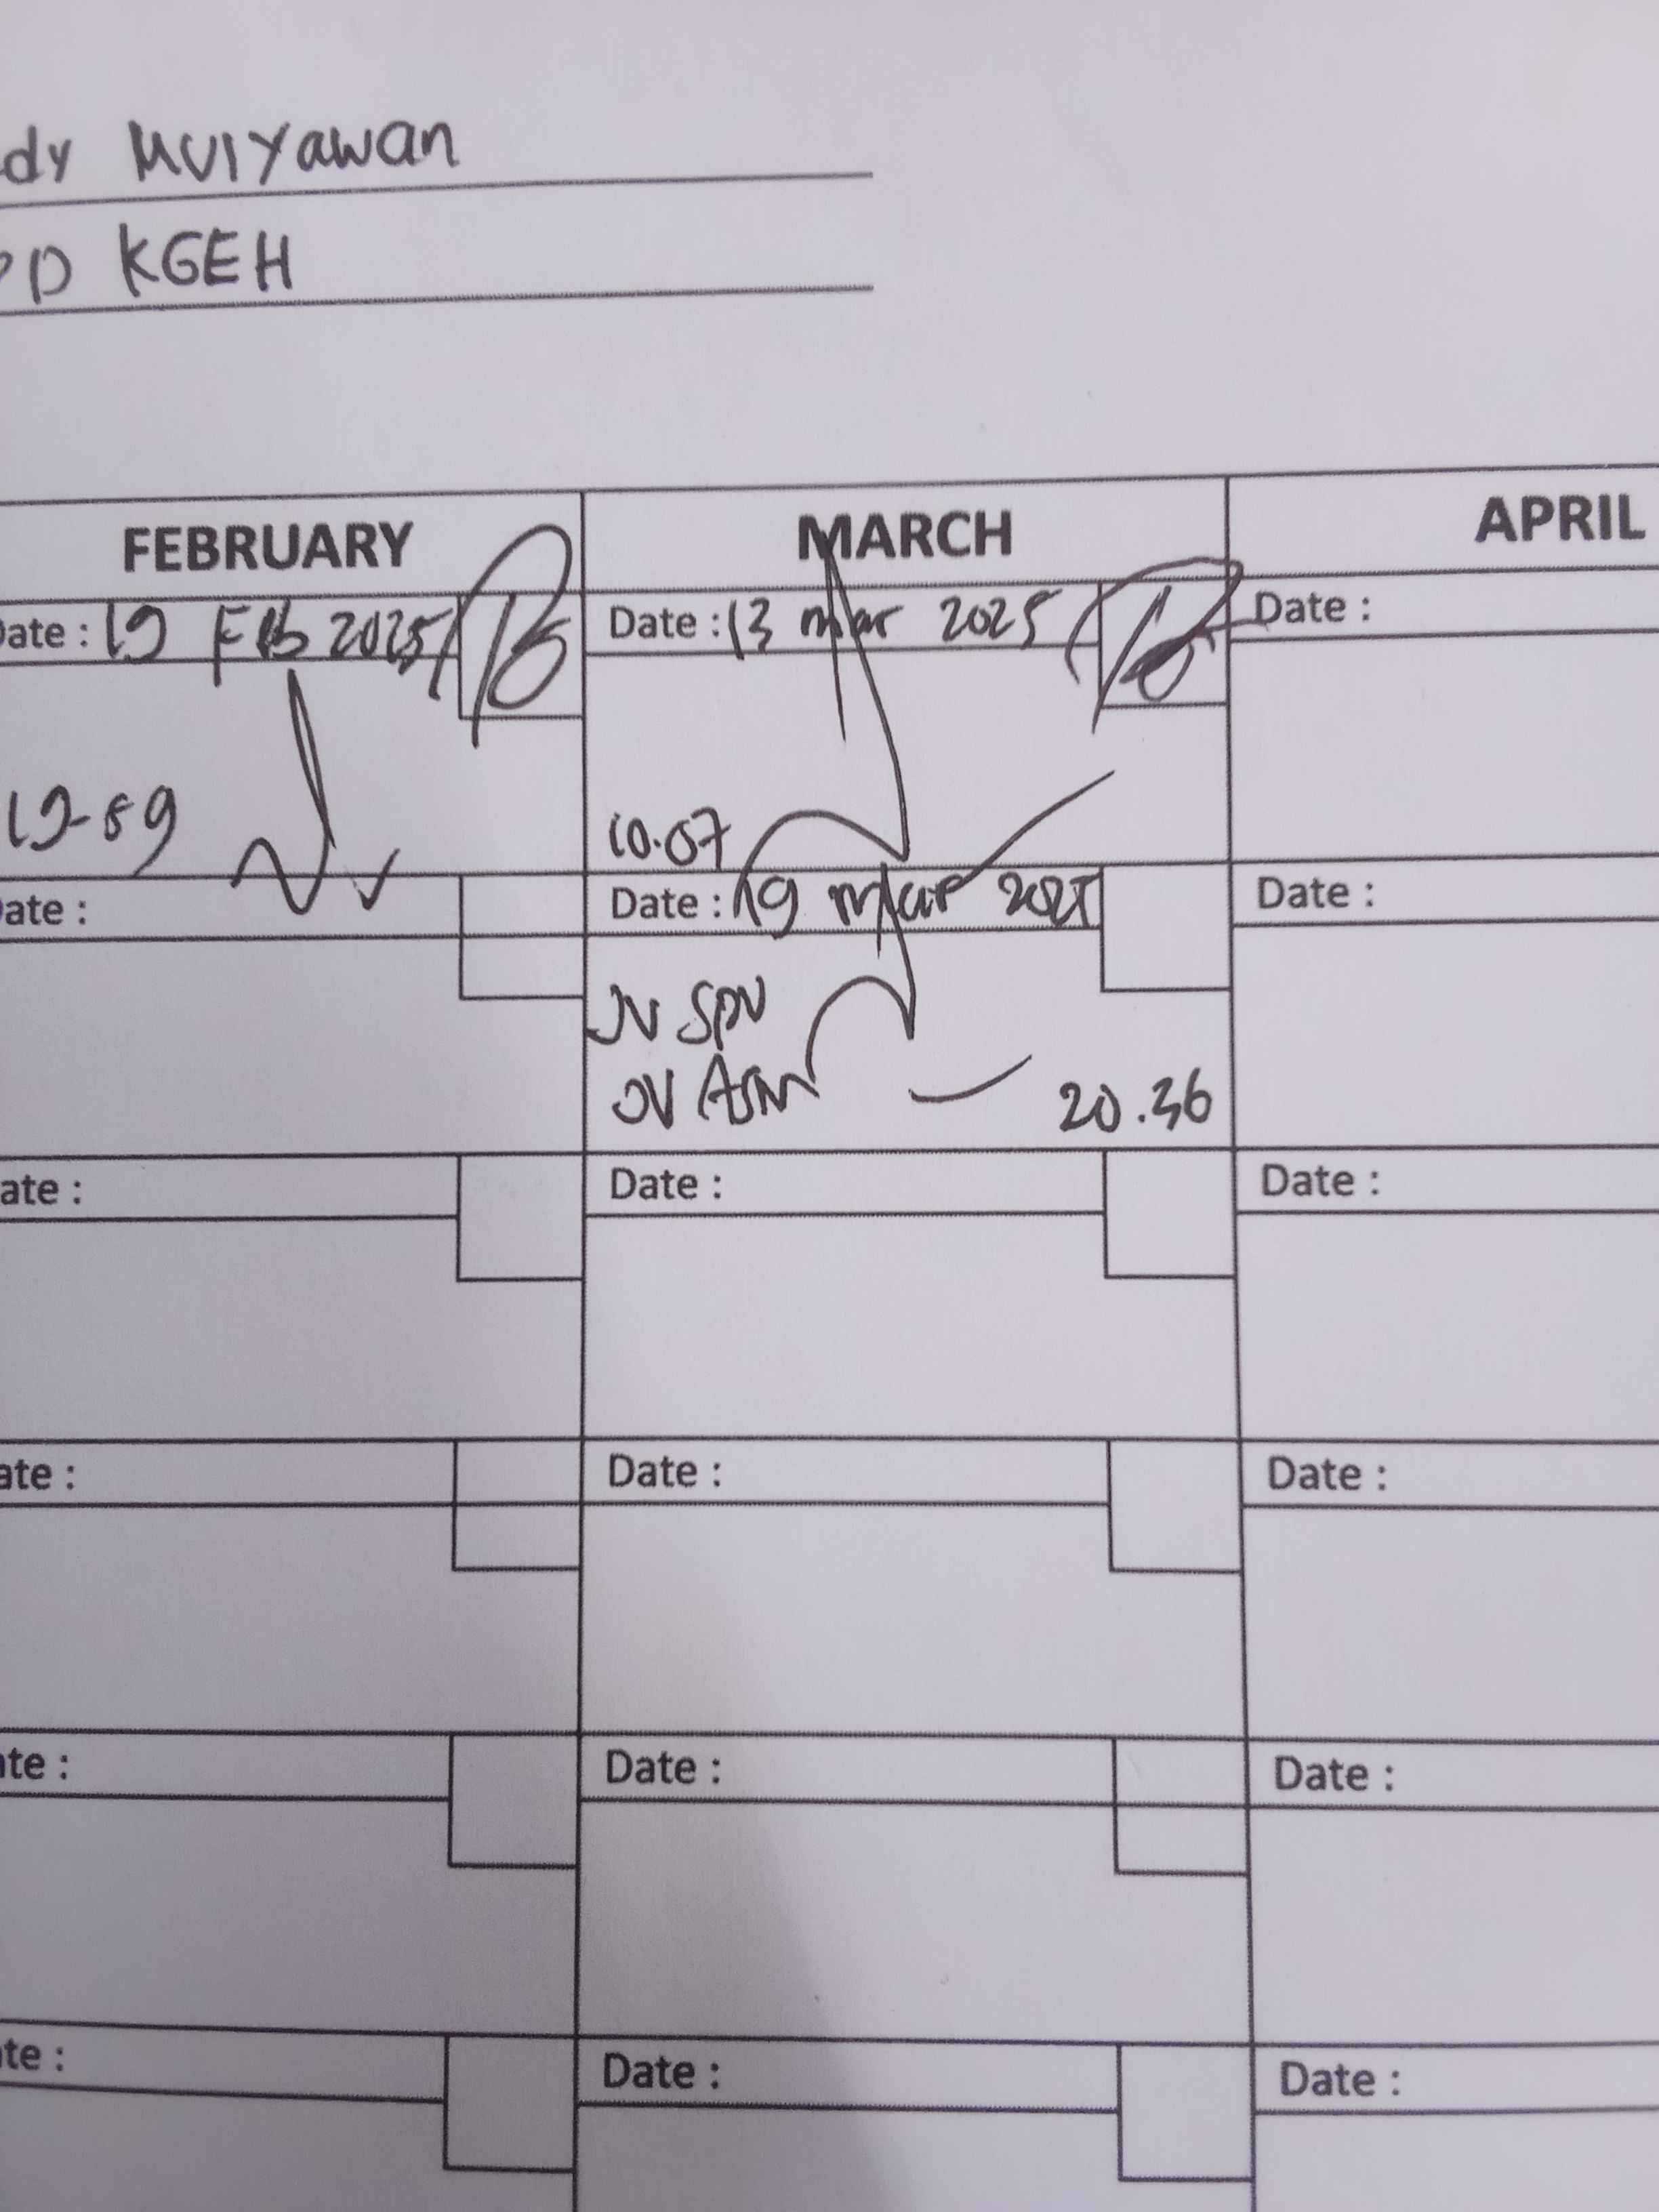 dy Muiyawan
PD KGEH
FEBRUARY MARCH APRIL
Date : 19 Feb 2025 Date : 13 mar 2025 Date :
19-59 10.07
Date : Date : 19 mar 2025 Date :
JV SPV
JV ASM 20.36
ate : Date : Date :
ate : Date : Date :
ate : Date : Date :
ate : Date : Date :